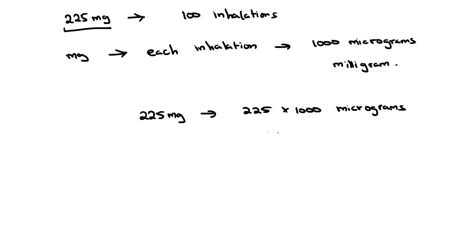 225 mg → 100 inhalations
mg → each inhalation → 1000 micrograms
milligram.
225 mg → 225 × 1000 micrograms